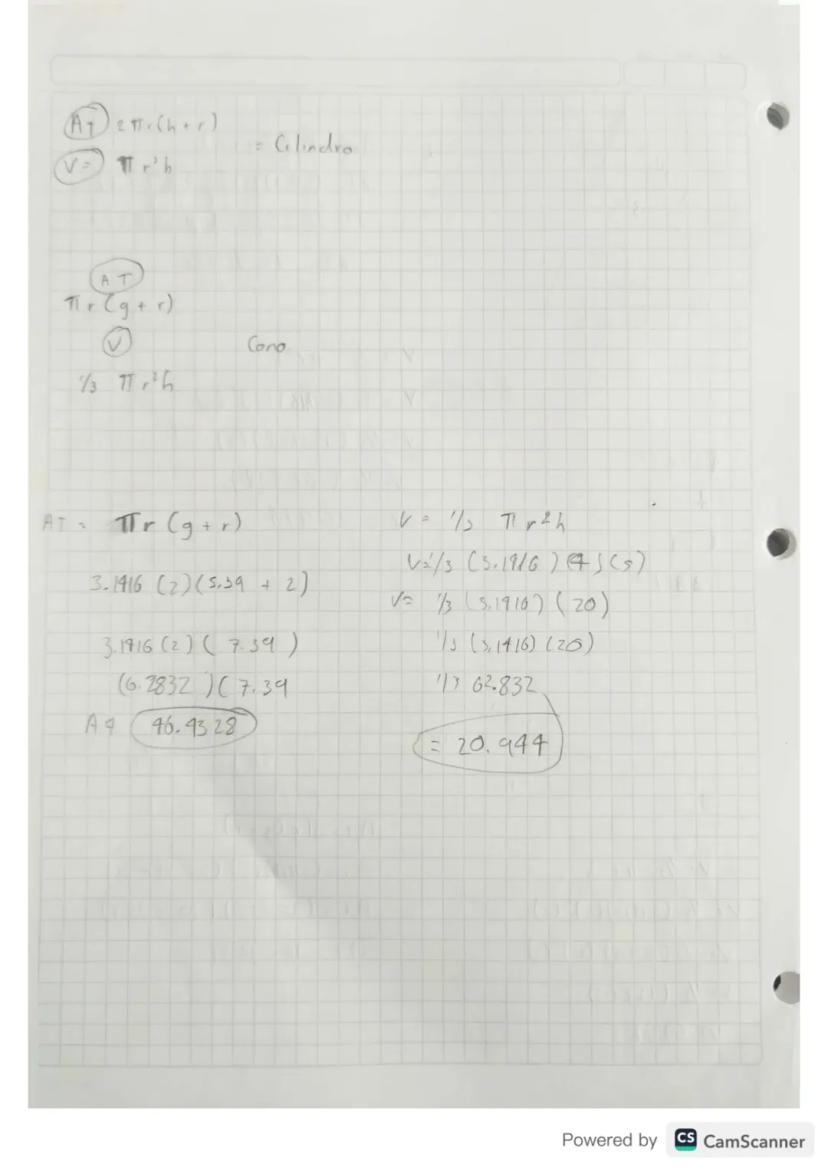 AT 2πr(h+r)
= Cilindro
V= πr²h
AT
πr(g+r)
V
Cono
1/3 πr²h
AT = πr(g+r)
3.1416(2)(5.39 + 2)
3.1416(2)(7.39)
(6.2832)(7.39
A4 46.4328
V = 1/3 πr²h
V=1/3 (3.1416)(4)(5)
V= 1/3 (3.1416)(20)
1/3 (3.1416)(20)
1/3 62.832
= 20.944
Powered by CS CamScanner